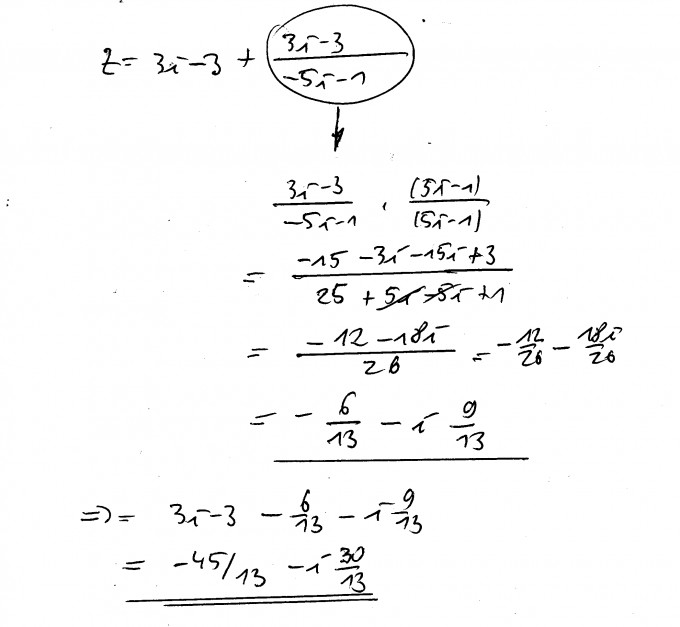 z = 3i-3 + \frac{3i-3}{-5i-1}
\frac{3i-3}{-5i-1} \cdot \frac{(5i-1)}{(5i-1)}
= \frac{-15 -3i -15i +3}{25 + 5i -5i +1}
= \frac{-12 -18i}{26} = -\frac{12}{26} - \frac{18i}{26}
= -\frac{6}{13} - i \frac{9}{13}
=> = 3i-3 - \frac{6}{13} - i \frac{9}{13}
= -45/13 - i \frac{30}{13}